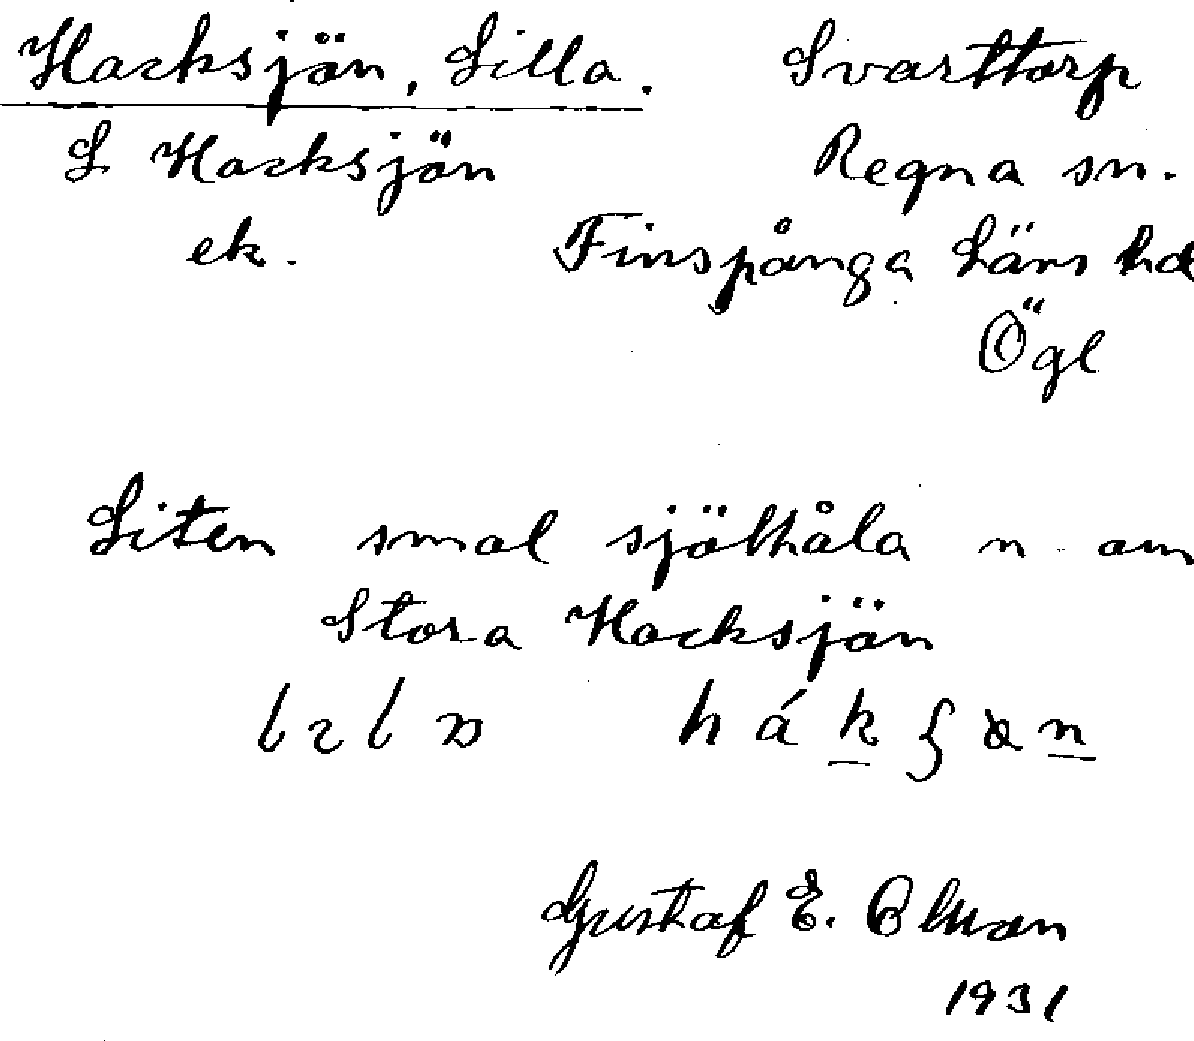 Hacksjön, Lilla. Svarttorp
L Hacksjön Regna sn.
ek. Finspånga läns hd
Ögl
Liten smal sjöhåla n om
Stora Hacksjön
Gustaf E.
1931